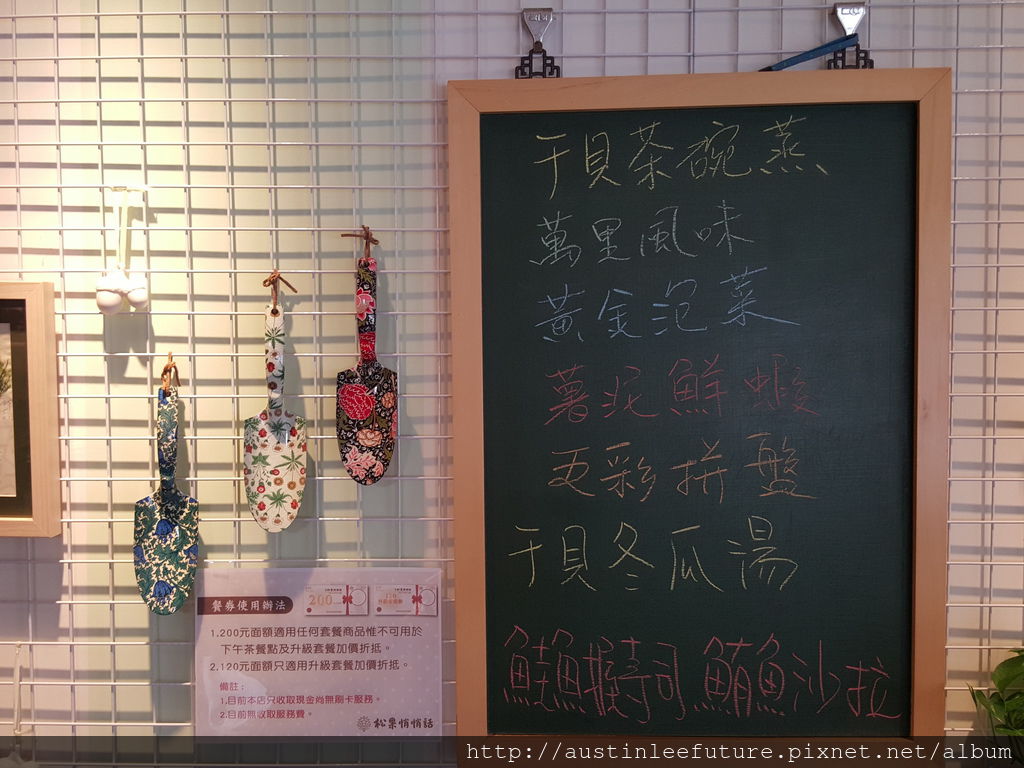 干貝茶碗蒸
萬里風味
黃金泡菜
薯泥鮮蝦
五彩拼盤
干貝冬瓜湯
鮭魚握壽司 鮪魚沙拉
餐券使用辦法
200
120
1.200元面額適用任何套餐商品惟不可用於
下午茶餐點及升級套餐加價折抵。
2.120元面額只適用升級套餐加價折抵。
備註：
1.目前本店只收取現金尚無刷卡服務。
2.目前無收取服務費。
松果悄悄話
http://austinleefuture.pixnet.net/album